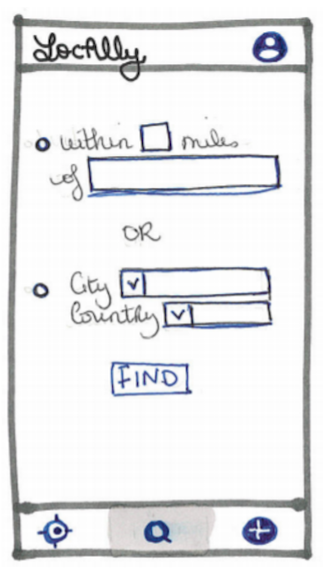 LocAlly
within miles
of
OR
City
Country
FIND